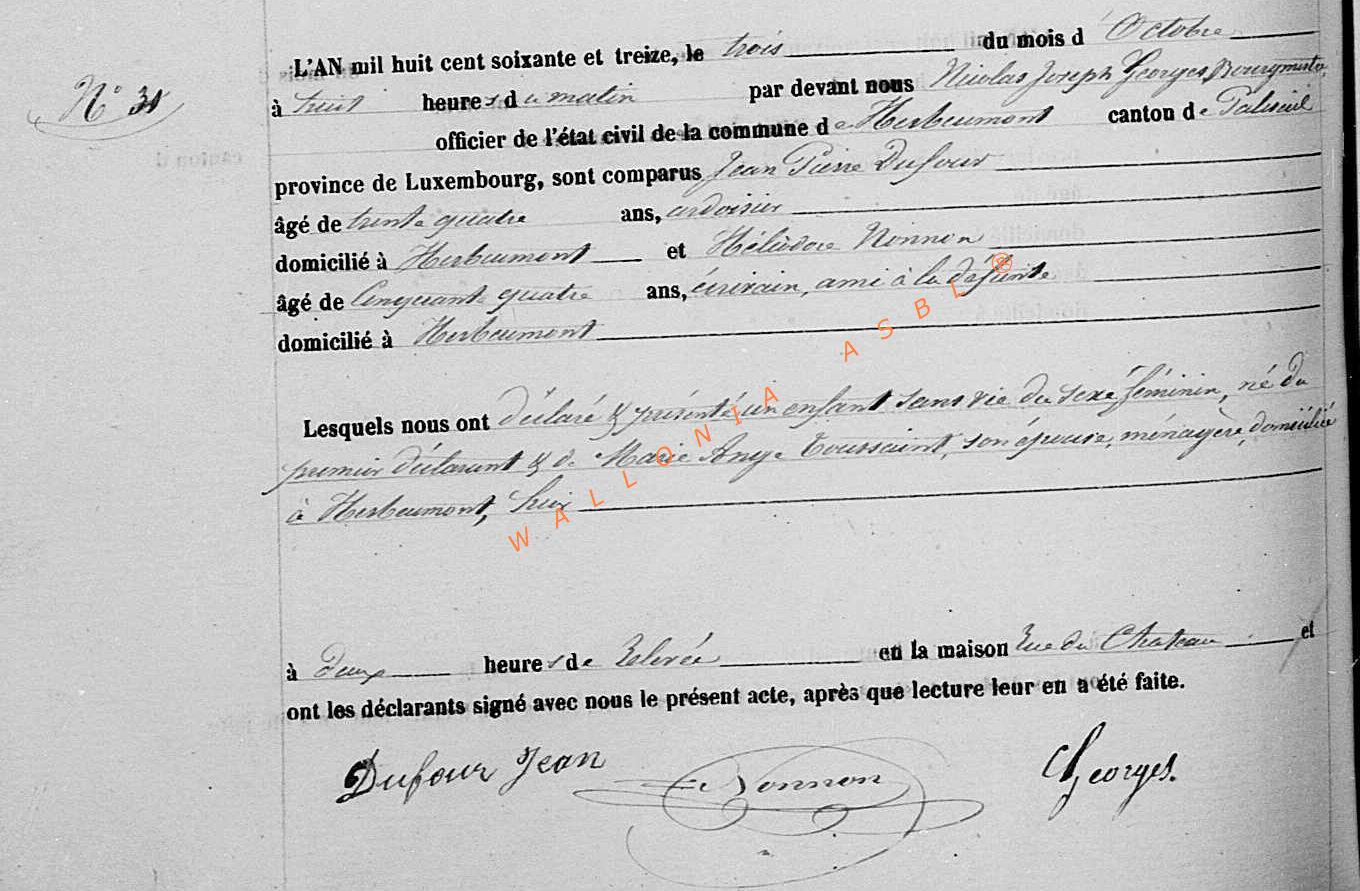 L'AN mil huit cent soixante et treize, le trois du mois d'Octobre
N° 31
à huit heures du matin par devant nous Nicolas Joseph Georges, Bourgmestre,
officier de l'état civil de la commune de Herbeumont canton de Paliseul
province de Luxembourg, sont comparus Jean Pierre Dufour
âgé de trente quatre ans, ardoisier
domicilié à Herbeumont et Héliodore Nonnon
âgé de Cinquante quatre ans, écrivain, ami à la défunte
domicilié à Herbeumont
Lesquels nous ont déclaré & présenté un enfant sans vie du sexe féminin, né du
premier déclarant & de Marie Ange Toussaint, son épouse, ménagère, domiciliée
à Herbeumont, hier
à Deux heures de Relevée en la maison Rue du Chateau et
ont les déclarants signé avec nous le présent acte, après que lecture leur en a été faite.
Dufour Jean Nonnon Georges.
WALLONIA ASBL ®